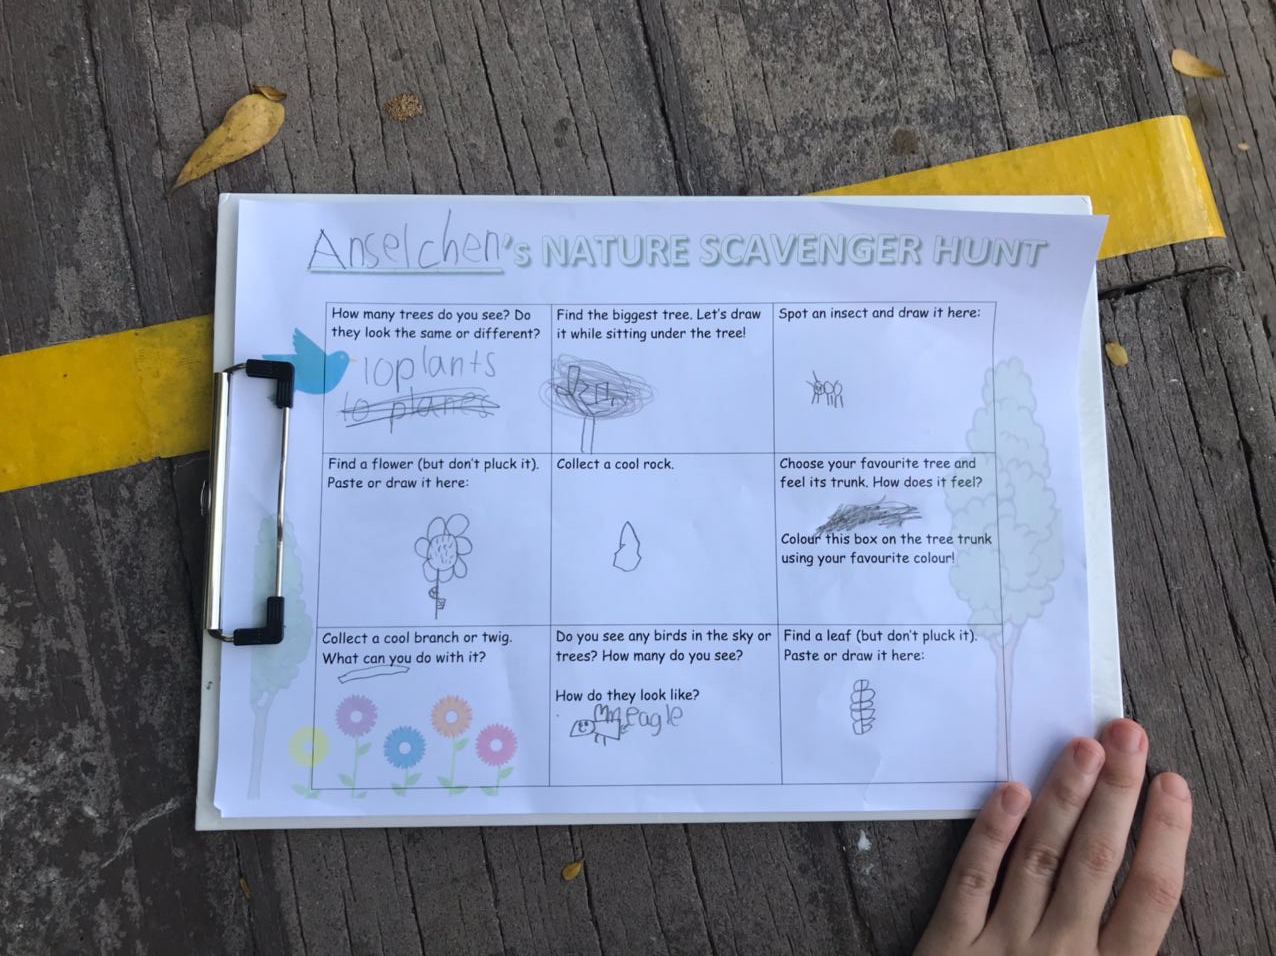 Anselchen's NATURE SCAVENGER HUNT
How many trees do you see? Do
they look the same or different?
10plants
10 planes
Find the biggest tree. Let's draw
it while sitting under the tree!
Spot an insect and draw it here:
Find a flower (but don't pluck it).
Paste or draw it here:
Collect a cool rock.
Choose your favourite tree and
feel its trunk. How does it feel?
Colour this box on the tree trunk
using your favourite colour!
Collect a cool branch or twig.
What can you do with it?
Do you see any birds in the sky or
trees? How many do you see?
How do they look like?
eagle
Find a leaf (but don't pluck it).
Paste or draw it here: